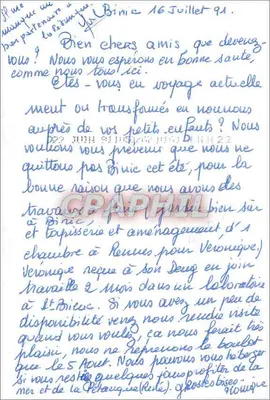 Il nous
manque un
bon partenaire à
la pétanque
Binic 16 Juillet 91.
Bien chers amis que devenez-
vous? Nous vous espérons en bonne santé,
comme nous tous ici.
Êtes-vous en voyage actuelle
ment ou transformés en nounous
auprès de vos petits enfants? Nous
voulions vous prévenir que nous ne
quittons pas Binic cet été, pour la
bonne raison que nous avons des
travaux à bien sûr
à Binic,
et tapisserie et aménagement d'1
chambre à Rennes pour Véronique)
Véronique reçue à son Deug en juin
travaille 2 mois dans un laboratoire
à St. Brieuc. Si vous avez un peu de
disponibilité venez nous rendre visite
quand vous voulez, ça nous ferait très
plaisir, nous ne reprenons le boulot
que le 5 Août. Nous pouvons vous héberger
si vous restez quelques jours profiter de la
mer et de la Pétanque (Reste). grosses bises
Monique